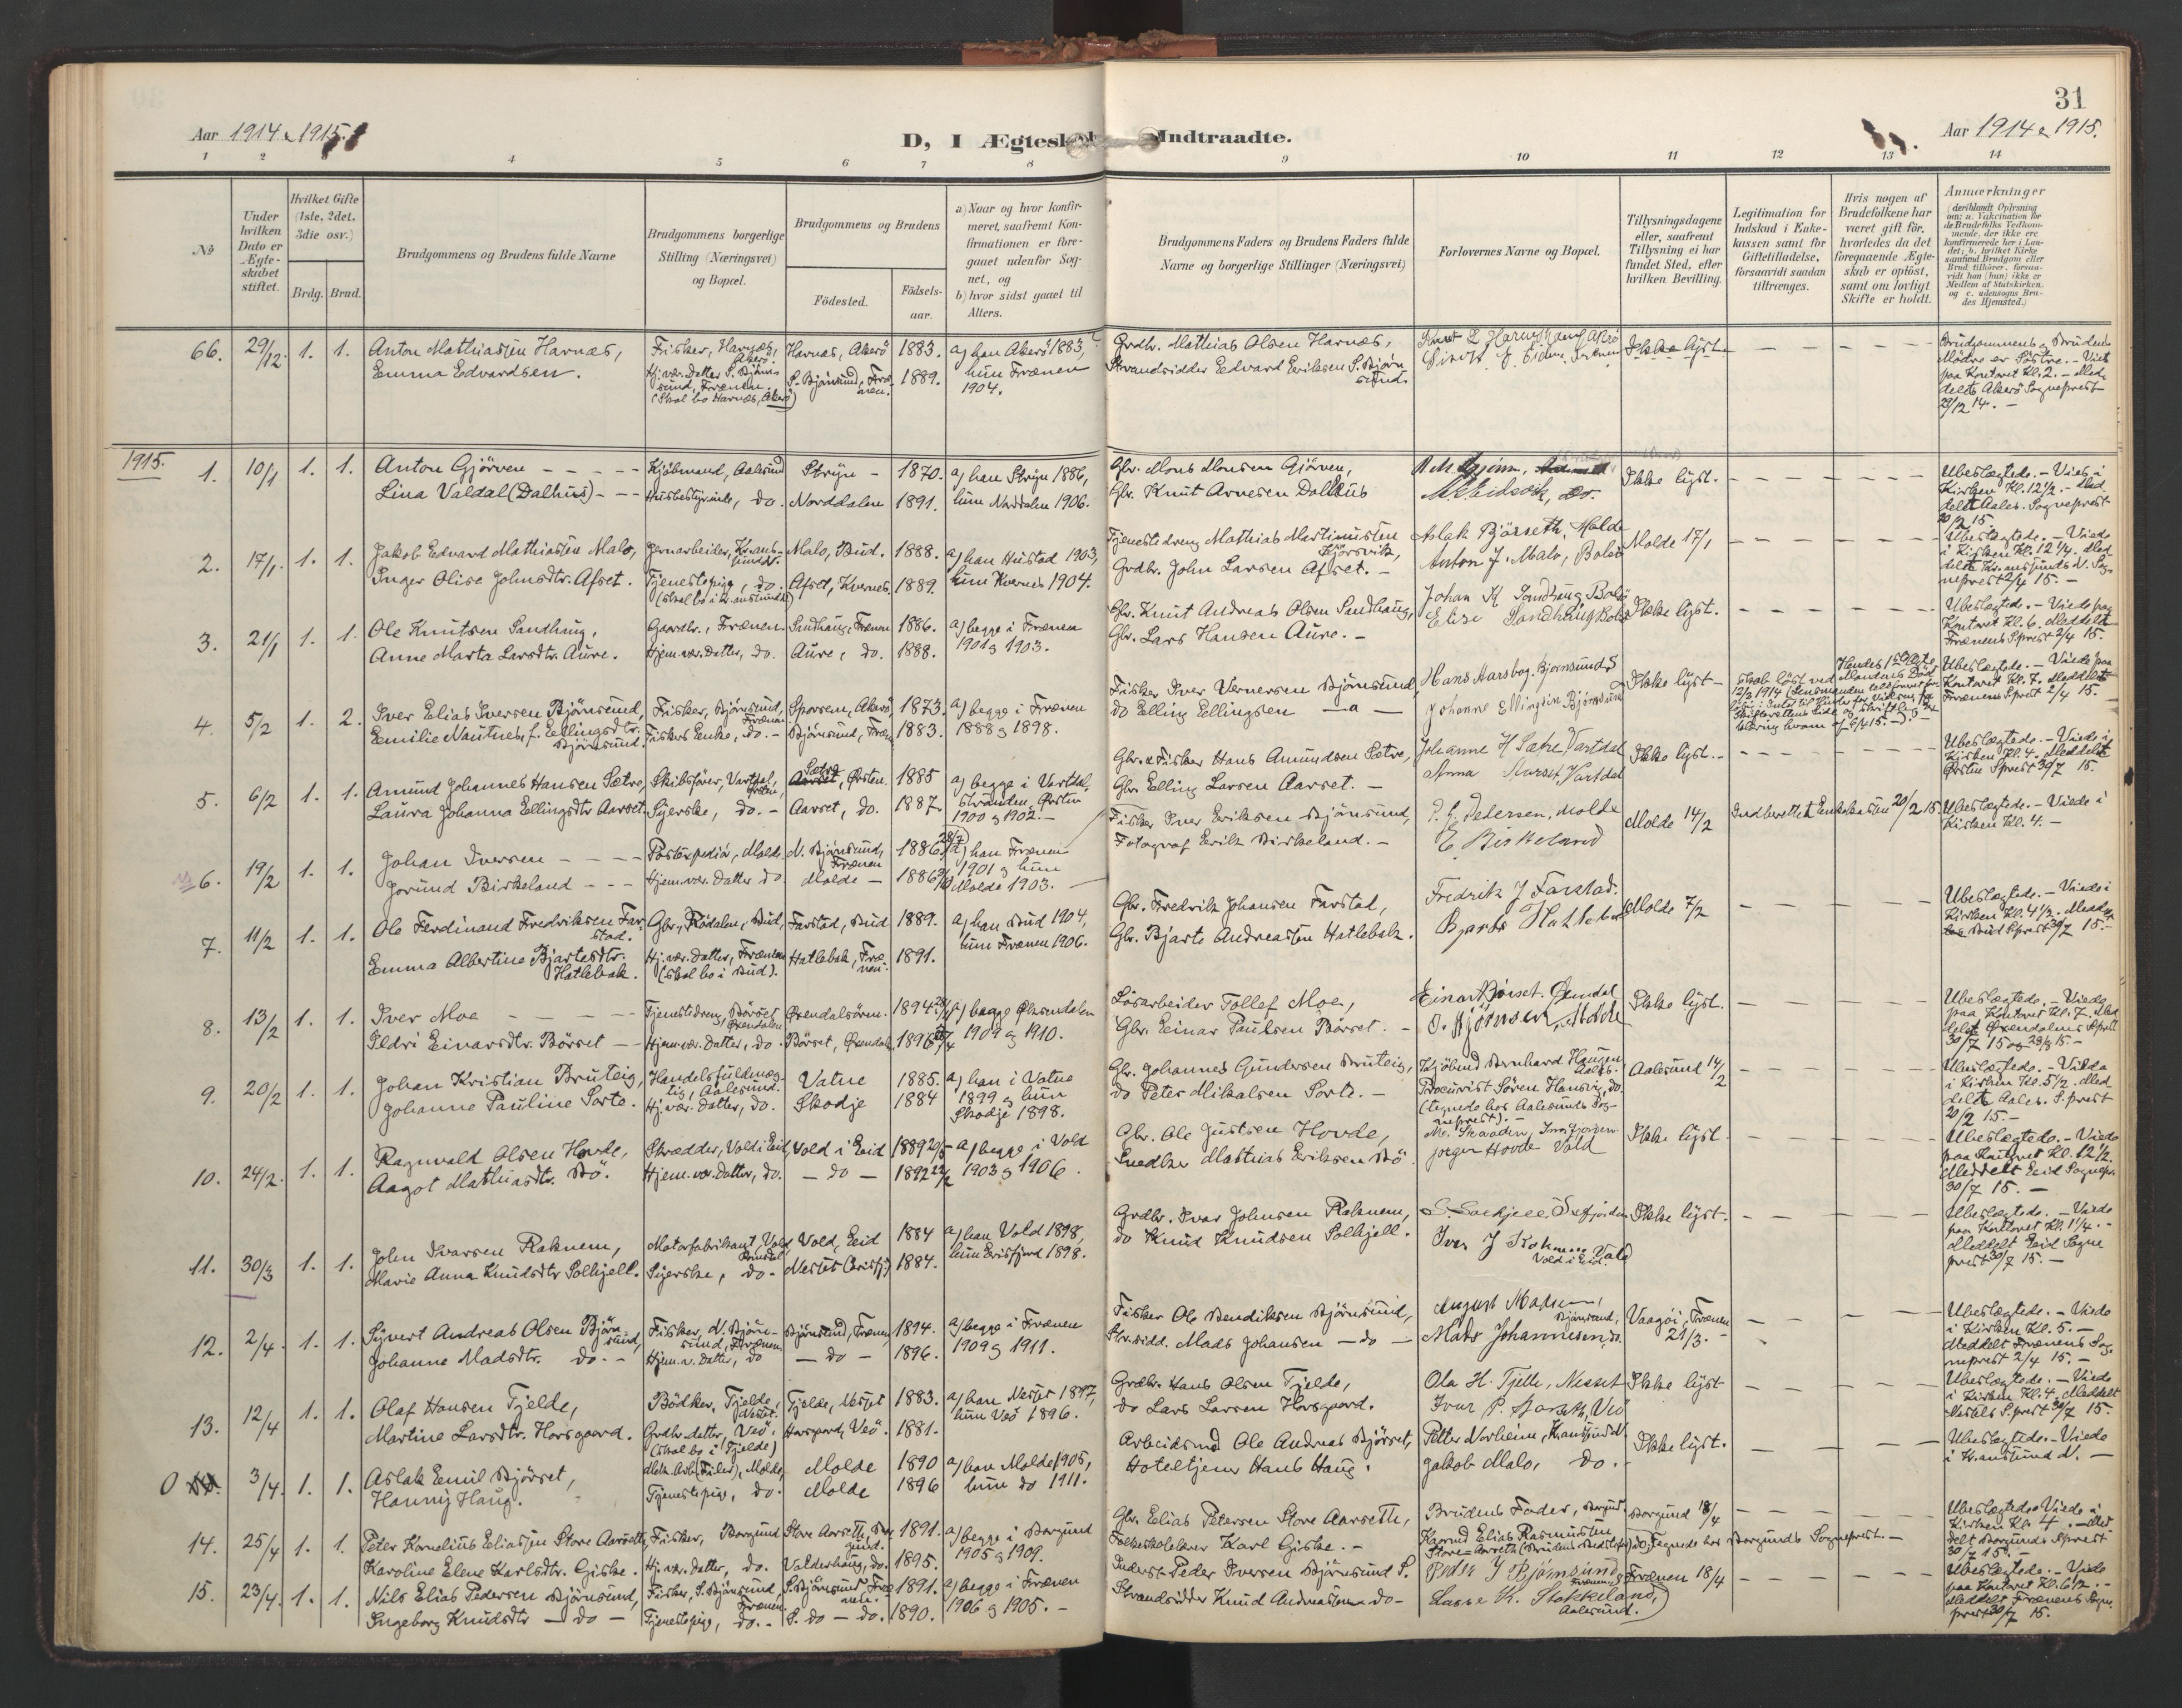 31
Aar 1914 & 1915.
D, I Ægteskab Indtraadte.
Aar 1914 & 1915.
1 2 3 4 5 6 7 8 9 10 11 12 13 14
No
Under hvilken Dato er Ægteskabet stiftet.
Hvilket Gifte (1ste, 2det, 3die osv.)
Brdg. Brud.
Brudgommens og Brudens fulde Navne
Brudgommens borgerlige Stilling (Næringsvei) og Bopæl.
Brudgommens og Brudens
Födested.
Födsels-aar.
a) Naar og hvor konfirmeret, saafremt Konfirmationen er foregaaet udenfor Sognet, og
b) hvor sidst gaaet til Alters.
Brudgommens Faders og Brudens Faders fulde Navne og borgerlige Stillinger (Næringsvei)
Forlovernes Navne og Bopæl.
Tillysningsdagene eller, saafremt Tillysning ei har fundet Sted, efter hvilken Bevilling.
Legitimation for Indskud i Enkekassen samt for Giftetilladelse, forsaavidt saadan tiltrænges.
Hvis nogen af Brudefolkene har været gift för, hvorledes da det foregaaende Ægteskab er oplöst, samt om lovligt Skifte er holdt.
Anmærkninger (deriblandt Oplysning om: a. Vakcination for de Brudefolks Vedkommende, der ikke ere konfirmerede her i Landet; b. hvilket Kirkesamfund Brudgom eller Brud tilhörer, forsaavidt han (hun) ikke er Medlem af Statskirken, og c. udensogns Brudes Hjemsted.)
66. 29/12. 1. 1. Anton Mathiassen Harnæs,
Emma Edvardsen.
Fisker, Harnæs, Akerö.
Hj. vær. Datter S. Björnsund, Frænen.
(Skal bo Harnæs, Akerö)
Harnæs, Akerö 1883.
S. Björnsund, Frænen. 1889.
a) han Akerö 1883, hun Frænen 1904.
Grdbr. Mathias Olsen Harnæs,
Strandsidder Edvard Eriksen S. Björnsund.
Ikke lyst.
Brudgommens og Brudens Mödre er Söstre. - Viet paa Kontoret Kl. 2. - Meddelt Akerö Sogneprest 29/12 14. -
1915.
1. 10/1 1. 1. Anton Gjörven
Lina Valdal (Dalhus)
Kjöbmand, Aalesund
Husbestyrinde, do.
Stryn - 1870.
Norddalen 1891.
a) han Stryn 1886, hun Norddalen 1906.
Gbr. Mons Monsen Gjörven,
Gbr. Knut Arnesen Dalhus
Ikke lyst.
Ubeslægtede. - Viet i Kirken Kl. 12 1/2. - Meddelt Aales. Sogneprest 20/2 15.
2. 17/1. 1. 1. Jakob Edvard Mathiassen Malo,
Inger Olise Johnsdtr. Afset.
Jernarbeider, Kr.ansund.
Tjenestepige, do.
(skal bo i Kr.ansund)
Malo, Bud. 1888.
Afset, Kvernes. 1889.
a) han Hustad 1903, hun Kvernes 1904.
Tjenestedreng Mathias Martinussen
Grdbr. John Larsen Afset. -
Aslak Björseth, Molde
Anton J. Malo, Bolsö
Molde 17/1
Ubeslægtede. - Viede i Kirken Kl. 12 1/4. Meddelt Kr.ansunds N. Sogneprest 2/4 15. -
3. 21/1 1. 1. Ole Knutsen Sandhaug,
Anne Marta Larsdtr. Aure.
Gaardbr., Frænen.
Hjem.vær. Datter, do.
Sandhaug, Frænen 1886.
Aure, do. 1888.
a) begge i Frænen 1901 & 1903.
Gbr. Knut Andreas Olsen Sandhaug,
Gbr. Lars Hansen Aure. -
Johan K Sandhaug Bolsö
Elise Sandhaug Bolsö
Ikke lyst.
Ubeslægtede. - Viede paa Kontoret Kl. 6. Meddelt Frænens S.prest 2/4 15.
4. 5/2 1. 2. Iver Elias Iversen Björnsund,
Emilie Nautnes, f. Ellingsdtr. Björnsund.
Fisker, Björnsund, Frænen
Fiskers Enke, do. -
Sporsem, Akerö, 1873.
Björnsund, Fræn 1883.
a) begge i Frænen 1888 & 1898.
Fisker Iver Vernersen Björnsund,
do Elling Ellingsen - a -
Johanne Ellingsen Bjornsund
Ikke lyst -
Hendes 1ste Ægteskab löst ved Mandens Död 12/3 1914
Ubeslægtede. - Viede paa Kontoret Kl. 7. Meddelt Frænens S.prest 2/4 15.
5. 6/2 1. 1. Amund Johannes Hansen Sætre,
Laura Johanna Ellingsdtr Aarset.
Skibsförer, Vartdal, Örsten,
Syerske, do. -
Sætre, Örsten. 1885
Aarset, do. 1887.
a) begge i Vartdalstranden, Örsten 1900 & 1902. -
Gbr. & Fisker Hans Amundsen Sætre,
Gbr. Elling Larsen Aarset. -
Johanne H Sætre Vartdal
Anna Aarset, Vartdal
Ikke lyst.
Ubeslægtede. - Viede i Kirken Kl. 4. Meddelt Örsten S.prest 30/7 15.
6. 19/2 1. 1. Johan Iversen
Jorund Birkeland
Postexpeditör, Molde.
Hjem.vær. Datter do.
N. Björnsund, Frænen 1886.
Molde - 1886
a) han Frænen 1901 & hun Molde 1903.
Fisker Iver Eriksen Björnsund,
Fotograf Erik Birkeland. -
P. G. Pedersen, Molde
E. Birkeland
Molde 14/2
Indberettet Enkekassen 20/2 15
Ubeslægtede. - Viede i Kirken Kl. 4. -
7. 11/2 1. 1. Ole Ferdinand Fredriksen Farstad.
Emma Albertine Bjartesdtr. Hatlebak.
Gbr., Rödalen, Bud,
Hj. vær. Datter, Frænen (skal bo i Bud).
Farstad, Bud 1889.
Hatlebak, Frænen. 1891.
a) han Bud 1904, hun Frænen 1906.
Gbr. Fredrik Johansen Farstad,
Gbr. Bjarte Andreassen Hatlebak.
Fredrik J Farstad.
Molde 7/2
Ubeslægtede. - Viede i Kirken Kl. 4 1/2. Meddelt Bud S.prest 30/7 15.
8. 13/2 1. 1. Iver Moe
Ildri Einarsdtr. Börset
Tjenestedreng, Börset Öxendalen
Hjem.vær. Datter, do.
Öxendalsören. 1894
Börset, Öxendalen 1896
a) begge Öxendalen 1909 & 1910.
Lösarbeider Tollef Moe,
Gbr. Einar Paulsen Börset. -
Ikke lyst.
Ubeslægtede. - Viede paa Kontoret Kl. 7. Meddelt Öxendalens S.prest 30/7 15
9. 20/2 1. 1. Johan Kristian Bruteig,
Johanne Pauline Sorte.
Handelsfuldmægtig, Aalesund.
Hj. vær. Datter, do.
Vatne 1885.
Skodje 1884
a) han i Vatne 1899 & hun Skodje 1898.
Gbr. Johannes Gundersen Bruteig,
do Peter Mikalsen Sorte. -
Kjöbmd Bernhard Hansen Aales.
Procurist Sören Hansvig, do.
(tegnede hos Aalesunds Sogneprest). -
Aalesund 14/2
Ubeslægtede. - Viede i Kirken Kl. 5 1/2. Meddelt Aales. S.prest 20/2 15. -
10. 24/2. 1. 1. Ragnvald Olsen Hovde,
Aagot Mathiasdtr. Bö.
Skrædder, Vold i Eid,
Hjem. vær. Datter, do.
Vold i Eid 1889
- do - 1892
a) begge i Vold 1903 & 1906.
Gbr. Ole Justsen Hovde,
Snedker Mathias Eriksen Bö
Jörgen Hovde Vold
Ikke lyst
Ubeslægtede. - Viede paa Kontoret Kl. 12 1/2. Meddelt Eid Sognepr. 30/7 15. -
11. 30/3 1. 1. John Ivarsen Raknem,
Marie Anna Knudsdtr Solkjell.
Motorfabrikant, Vold,
Syerske, do -
Vold, Eid 1884
Nesset (Erisfj) 1884.
a) han Vold 1898, hun Erisfjord 1898.
Grdbr. Ivar Johnsen Raknem,
do Knud Knudsen Solkjell.
Ikke lyst.
Ubeslægtede. - Viede paa Kontoret Kl. 1 1/4. - Meddelt Eid Sogneprest 30/7 15. -
12. 2/4. 1. 1. Syvert Andreas Olsen Björnsund,
Johanne Madsdtr. do. -
Fisker, N. Björnsund, Frænen
Hjem. v. Datter, do
Björnsund, Frænen 1894.
- do - 1896.
a) begge i Frænen 1909 & 1911.
Fisker Ole Bendiksen Björnsund,
Str.sidd. Mads Johansen - do -
August Madsen, Björnsund,
Mads Johannesen, do.
Vaagöi, Frænen 21/3. -
Ubeslægtede. - Viede i Kirken Kl. 5. - Meddelt Frænens Sogneprest 2/4 15. -
13. 12/4 1. 1. Olaf Hansen Tjelde,
Martine Larsdtr. Horsgaard.
Bödker, Tjelde, Nesset.
Grdbr. datter, Veö.
(skal bo i Tjelde)
Tjelde, Nesset 1883.
Horsgaard, Veö. 1881.
a) han Nesset 1897, hun Veö 1896.
Grdbr. Hans Olsen Tjelde,
do Lars Larsen Horsgaard.
Ola H. Tjelle, Nesset
Ikke lyst
Ubeslægtede. - Viede i Kirken Kl. 4. Meddelt Nessets S.prest 30/7 15.
0 3/4. 1. 1. Aslak Emil Björset,
Hanny Haug.
Mek. Arb. (Filer), Molde,
Tjenestepige, do.
Molde 1890
Molde 1896
a) han Molde 1905, hun do 1911.
Arbeidsmd Ole Andreas Björset,
Hoteltjener Hans Haug.
Petter Norheim, Kr.ansund N
Jakob Malo, do. -
Ikke lyst.
Ubeslægtede. - Viede i Kr.ansund N. -
14. 25/4 1. 1. Peter Kornelius Eliassen Store Aarseth,
Karoline Elene Karlsdtr. Giske.
Fisker, Borgund
Hj. vær. Datter, do.
Store Aarseth, Borgund. 1891.
Valderhaug, do. 1895.
a) begge i Borgund 1905 & 1909.
Gbr. Elias Petersen Store Aarseth,
Folkeskolelærer Karl Giske. -
Brudens Fader, Borgund
Karnd Elias Rasmussen
Store-Aarseth (Brudens Bedstefar) do. Tegnede hos Borgunds Sogneprest. -
Borgund 18/4
Ubeslægtede Viede i Kirken Kl. 4. - Meddelt Borgunds S.prest 30/7 15. -
15. 23/4. 1. 1. Nils Elias Pedersen Björnsund,
Ingeborg Knudsdtr - do -
Fisker, S. Björnsund, Frænen.
Tjenestepige, do. -
S. Björnsund Frænen. 1891.
S. do - do. 1890.
a) begge i Frænen 1906 & 1905. -
Inderst Peder Iversen Björnsund S.
Strandsidder Knud Andreassen - do -
Peder I Bjørnsund, Frænen
Lasse K. Stokkeland, Aalesund.
Frænen 18/4
Ubeslægtede. - Viede paa Kontoret Kl. 6 1/2. - Meddelt Frænens Sogneprest 30/7 15.